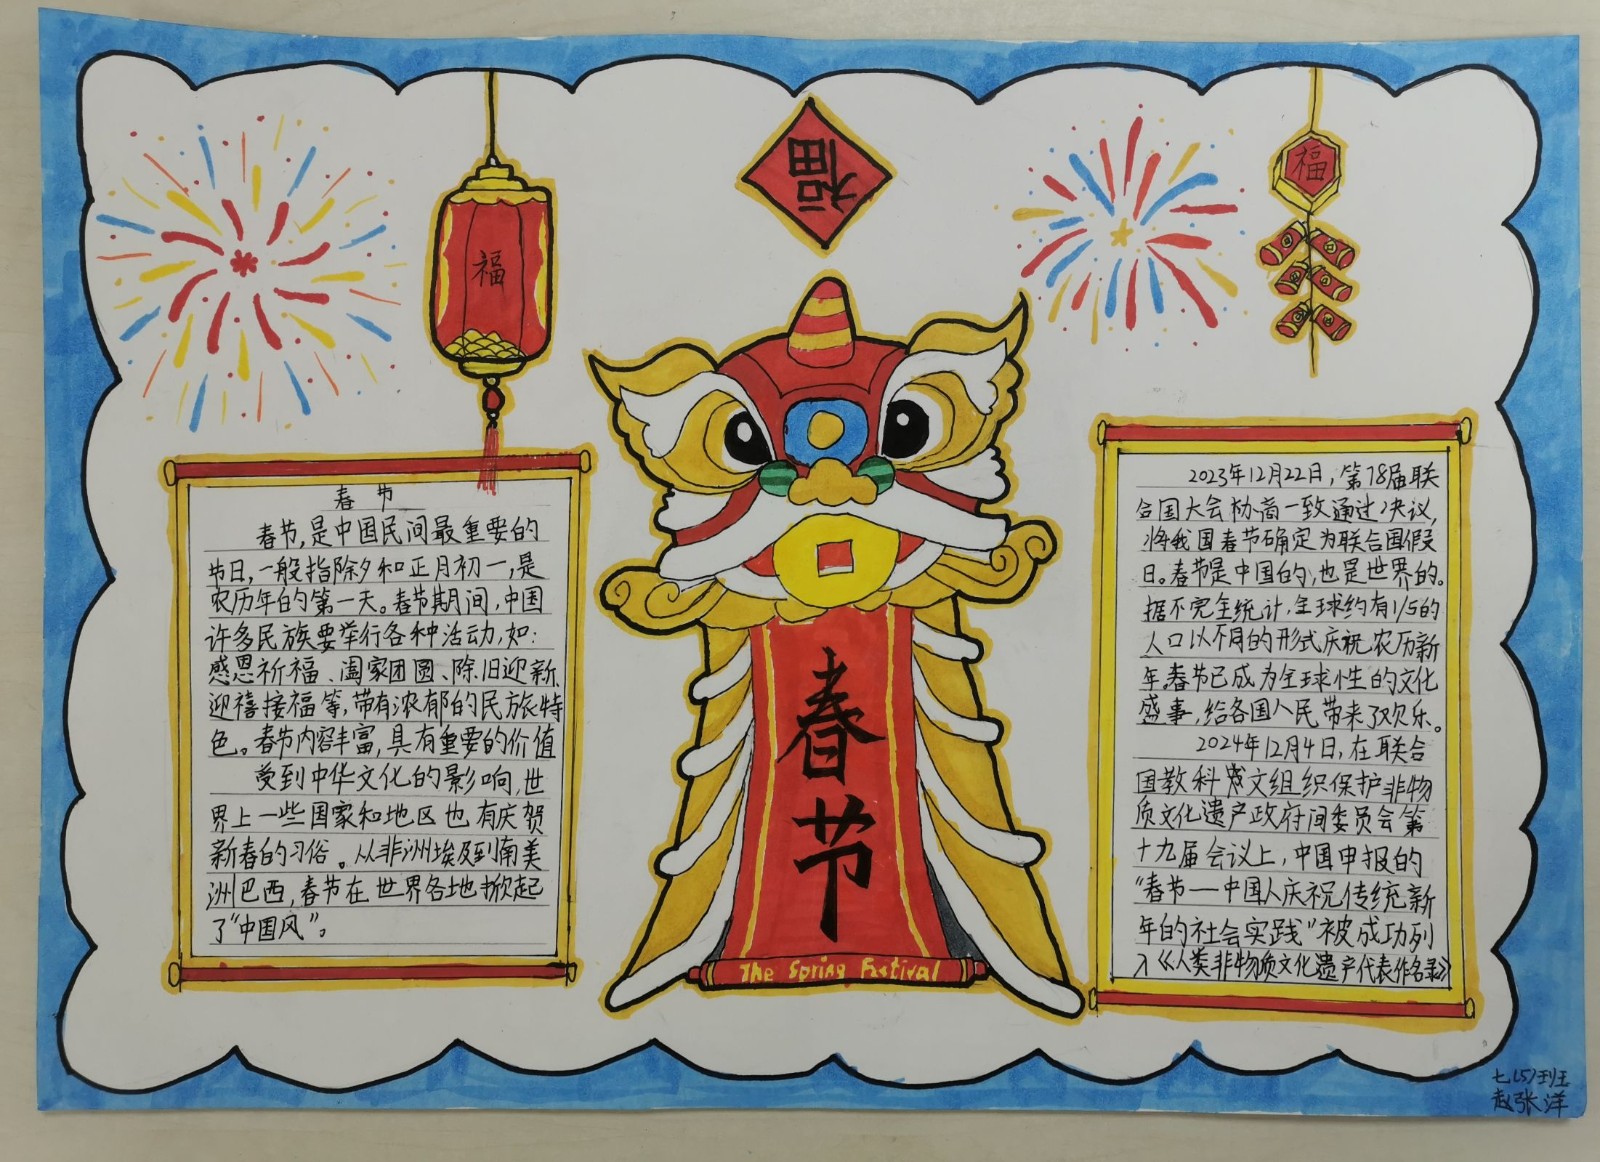 福
福
福
春节
The Spring Festival
春节
春节,是中国民间最重要的
节日,一般指除夕和正月初一,是
农历年的第一天。春节期间,中国
许多民族要举行各种活动,如:
感恩祈福、阖家团圆、除旧迎新、
迎禧接福等,带有浓郁的民族特
色。春节内容丰富,具有重要的价值
受到中华文化的影响,世
界上一些国家和地区也有庆贺
新春的习俗。从非洲埃及到南美
洲巴西,春节在世界各地掀起
了“中国风”。
2023年12月22日,第78届联
合国大会协商一致通过决议,
将我国春节确定为联合国假
日。春节是中国的,也是世界的。
据不完全统计,全球约有1/5的
人口以不同的形式庆祝农历新
年。春节已成为全球性的文化
盛事,给各国人民带来了欢乐。
2024年12月4日,在联合
国教科文组织保护非物
质文化遗产政府间委员会第
十九届会议上,中国申报的
“春节——中国人庆祝传统新
年的社会实践”被成功列
入《人类非物质文化遗产代表作名录》
七(5)班
赵张洋